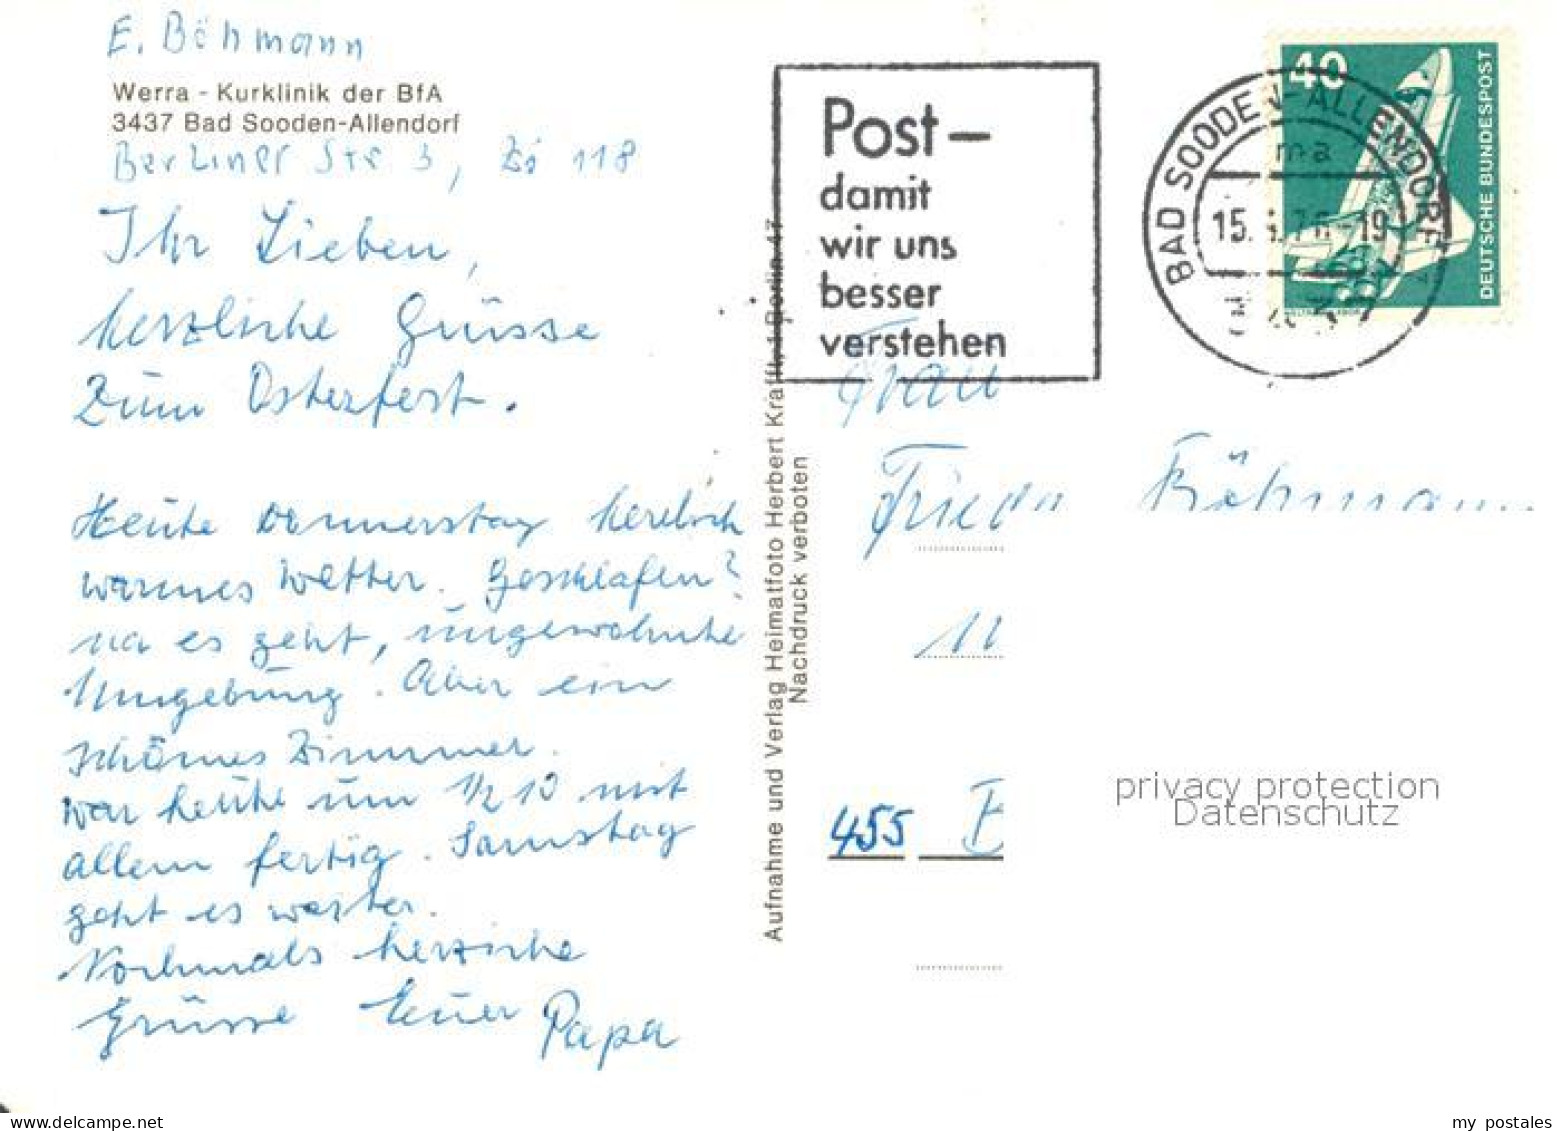 E. Böhmann
Werra - Kurklinik der BfA
3437 Bad Sooden-Allendorf
Berliner Str 3, Zi 118
Ihr Lieben,
herzliche Grüsse
zum Osterfest.
Heute Donnerstag herrlich
warmes Wetter. Geschlafen?
na es geht, ungewohnte
Umgebung. Aber ein
schönes Zimmer.
War heute um 1/2 10 mit
allem fertig. Samstag
geht es weiter.
Nochmals herzliche
Grüsse Euer Papa
Aufnahme und Verlag Heimatfoto Herbert Krafft, 1 Berlin 47
Nachdruck verboten
Post-
damit
wir uns
besser
verstehen
BAD SOODEN-ALLENDORF
ma
40
DEUTSCHE BUNDESPOST
Frau
Frieda Böhmann
455 E
privacy protection
Datenschutz
my_postales